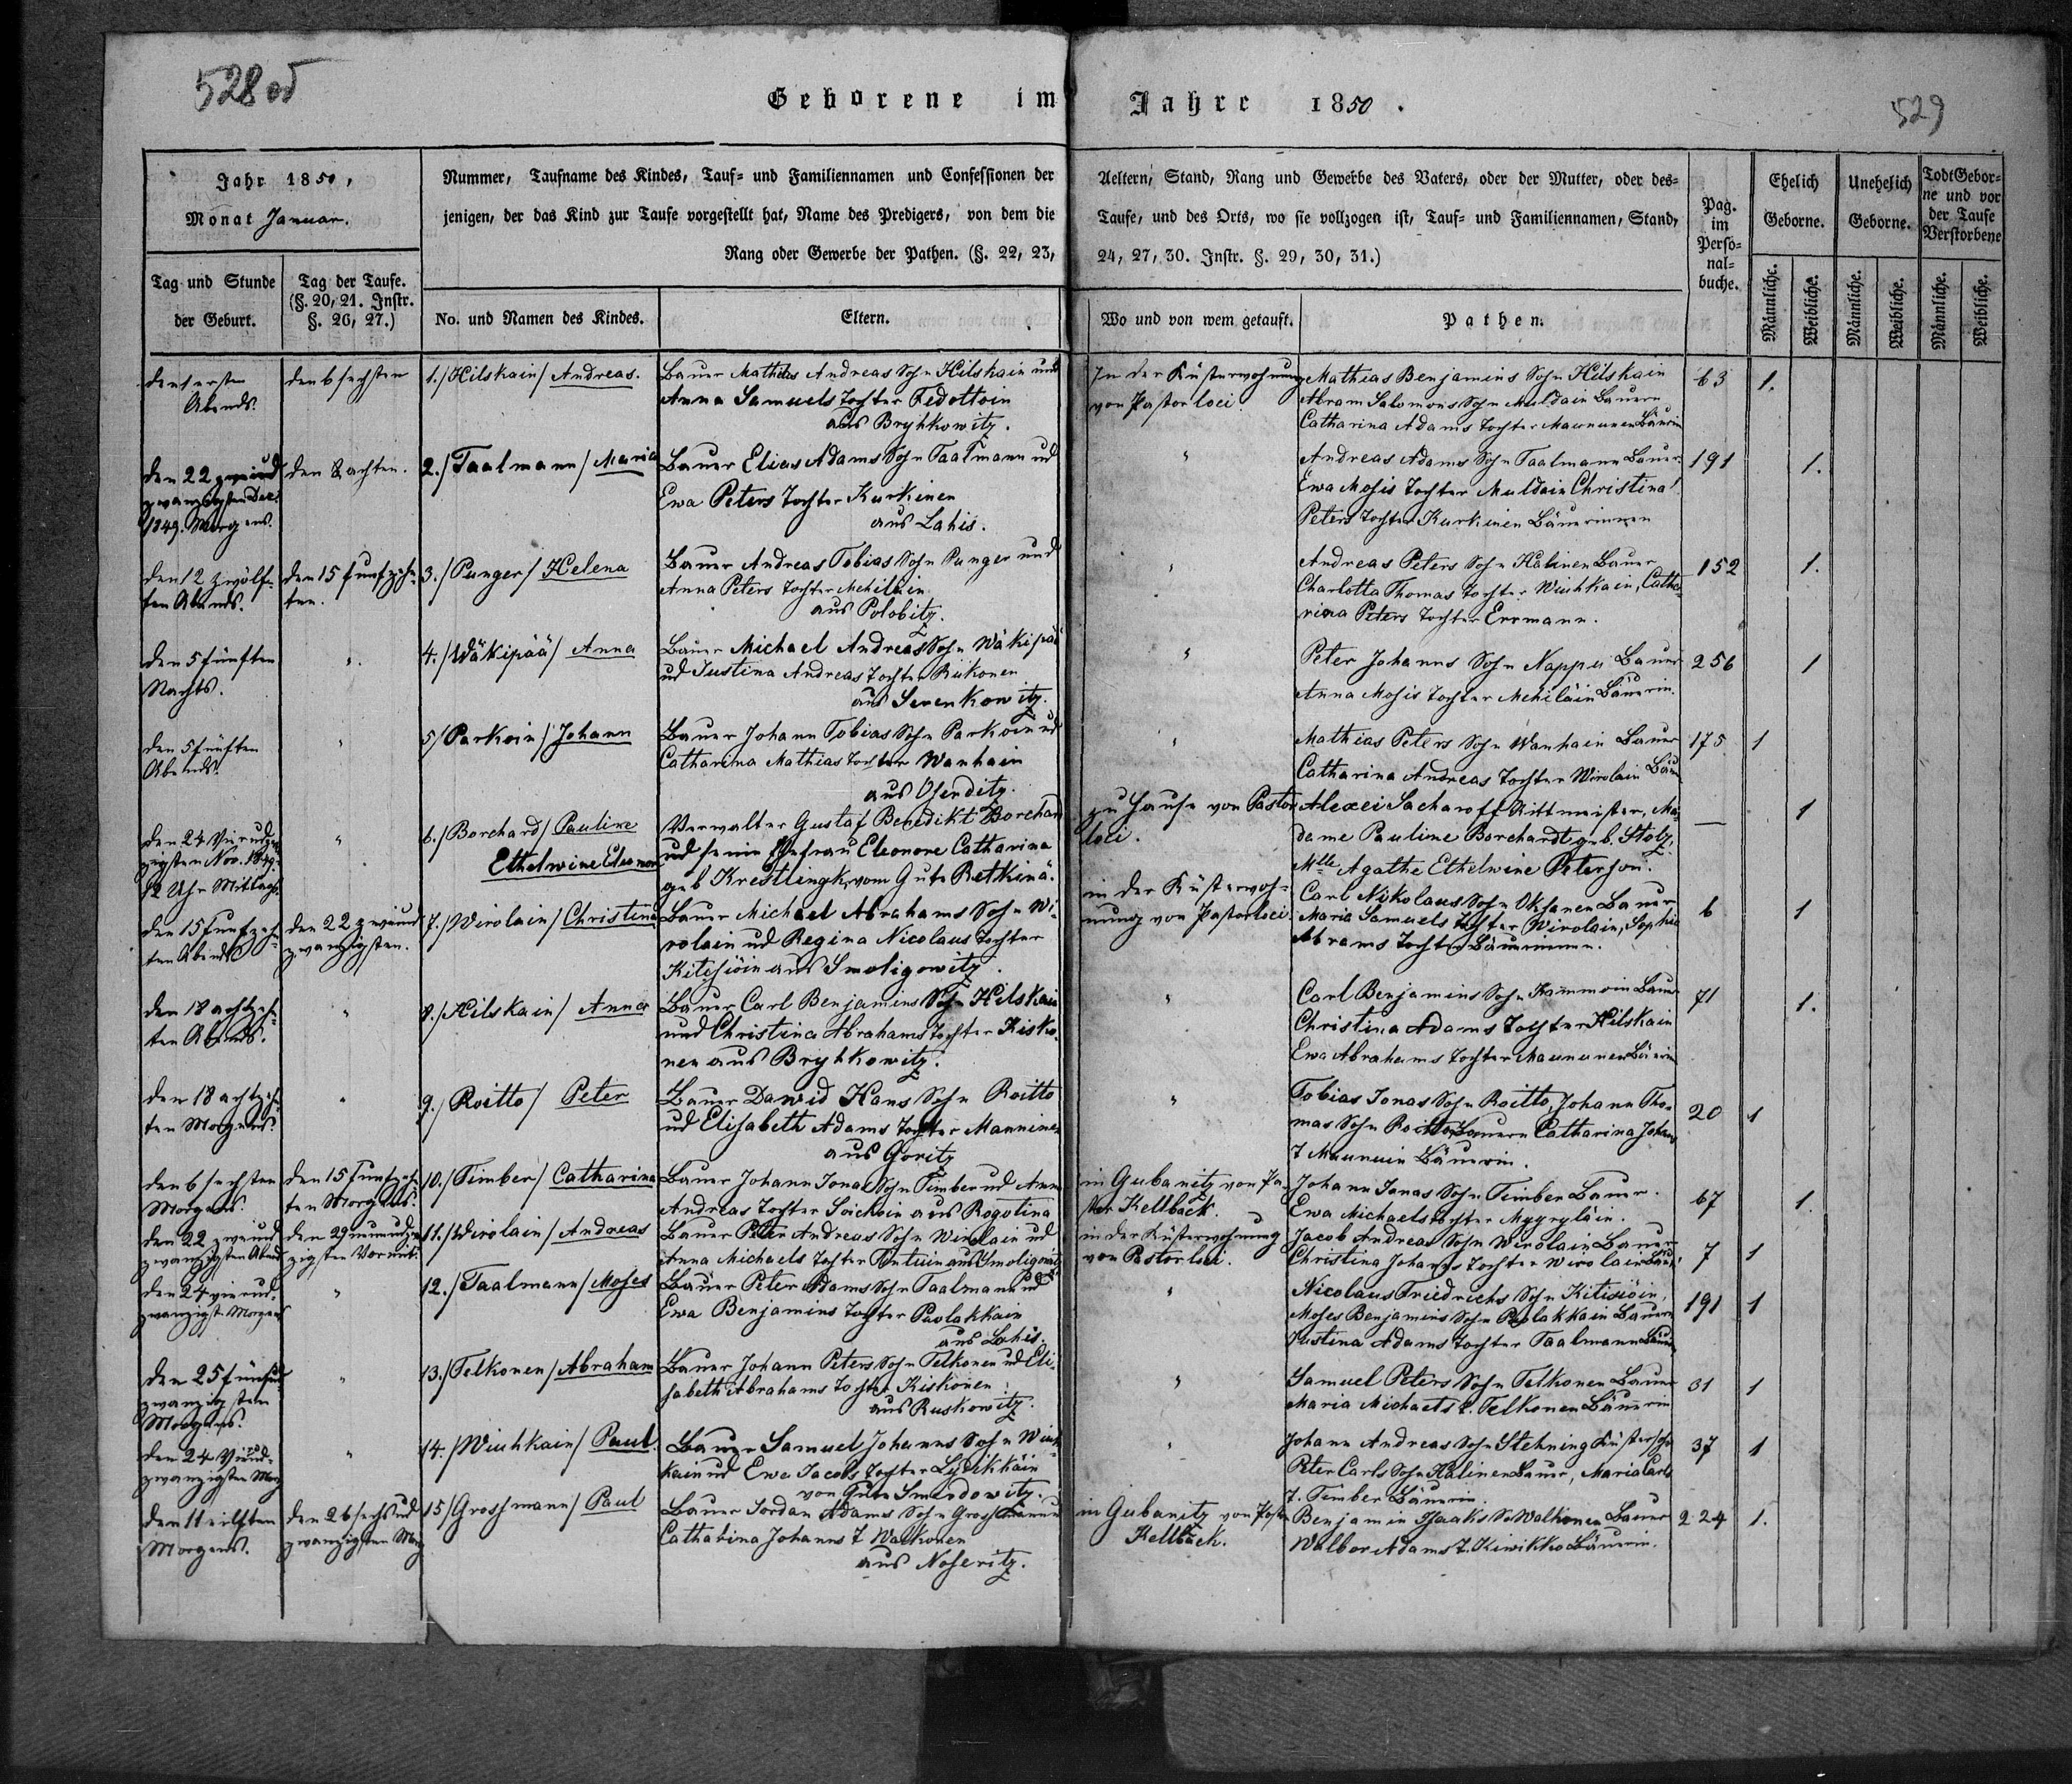 528
Geborene im Jahre 1850.
529
Jahr 1850,
Monat Januar.
Nummer, Taufname des Kindes, Tauf- und Familiennamen und Confessionen der
jenigen, der das Kind zur Taufe vorgestellt hat, Name des Predigers, von dem die
Rang oder Gewerbe der Pathen. (§. 22, 23,
Aeltern, Stand, Rang und Gewerbe des Vaters, oder der Mutter, oder des-
Taufe, und des Orts, wo sie vollzogen ist, Tauf- und Familiennamen, Stand,
24, 27, 30. Instr. §. 29, 30, 31.)
Pag.
im
Perso-
nal-
buche.
Ehelich
Geborne.
Unehelich
Geborne.
Todt Gebor-
ne und vor
der Taufe
Verstorbene
Tag und Stunde
der Geburt.
Tag der Taufe.
(§. 20, 21. Instr.
§. 26, 27.)
No. und Namen des Kindes.
Eltern.
Wo und von wem getauft.
Pathen.
Männliche.
Weibliche.
Männliche.
Weibliche.
Männliche.
Weibliche.
den 1 ersten
Abends.
den 6 sechsten
1./ Hilskain/ Andreas.
Bauer Mathias Andreas Sohn Hilskain und
Anna Samuels Tochter Fedottoin
aus Bryhkowitz.
In der Küsterwohnung
von Pastor loci.
Mathias Benjamins Sohn Hilskain
Abram Salomons Sohn Muldain Bauern
Catharina Adams Tochter Maununen Bäurin
63
1.
den 22 zweiund
zwanzigsten Dec.
1849. Morgens.
den 8 achten.
2./ Taalmann/ Maria
Bauer Elias Adams Sohn Taalmann ud
Ewa Peters Tochter Kurkinen
aus Lahis.
"
Andreas Adams Sohn Taalmann Bauer
Ewa Mosis Tochter Muldain Christina
Peters Tochter Kurkinen Bäuerinnen
191
1.
den 12 zwölf-
ten Abends.
den 15 funfzehn-
ten.
3./ Punger/ Helena
Bauer Andreas Tobias Sohn Punger und
Anna Peters Tochter Mehiläin
aus Polobitz.
"
Andreas Peters Sohn Halinen Bauer
Charlotta Thomas Tochter Wiuhkain, Catha-
rina Peters Tochter Errmann.
152
1.
den 5 fünften
Nachts.
"
4./ Wäkipää/ Anna
Bauer Michael Andreas Sohn Wäkipää
ud Justina Andreas Tochter Rikonen
aus Serenkowitz.
"
Peter Johanns Sohn Nappu Bauer
Anna Mosis Tochter Mehiläin Bäuerin.
256
1
den 5 fünften
Abends.
"
5/ Parkoin/ Johann
Bauer Johann Tobias Sohn Parkoin ud
Catharina Mathias Tochter Wanhain
aus Osenditz.
"
Mathias Peters Sohn Wanhain Bauer
Catharina Andreas Tochter Wirolain Bäu
175
1
den 24 Vierundzwan-
zigsten Nov. 1849.
12 Uhr Mittags.
"
6./ Borchard/ Pauline
Ethelwine Eleonore
Verwalter Gustaf Benedikt Borchard
ud seine Ehefrau Eleonore Catharina
geb Krestlingk, vom Gute Retkinä.
zu Hause von Pastor
loci.
Alexei Sacharoff Rittmeister, Ma-
dame Pauline Borchardt geb. Stolz,
Mlle Agathe Ethelwine Peterson.
—
1
den 15 funfzehn
ten Abends
den 22 zweiund
zwanzigsten.
7./ Wirolain/ Christina
Bauer Michael Abrahams Sohn Wi-
rolain ud Regina Nicolaus Tochter
Kitisiöin aus Smoligowitz.
in der Küsterwoh-
nung von Pastor loci
Carl Nikolaus Sohn Oksanen Bauer
Maria Samuels Tochter Wirolain, Sophia
Abrams Tochter Bäuerinnen.
6
1
den 18 achtzehn-
ten Abends.
"
8./ Hilskain/ Anna
Bauer Carl Benjamins Sohn Hilskain
und Christina Abrahams Tochter Kisko-
nen aus Bryhkowitz.
"
Carl Benjamins Sohn Kammoin Bauer
Christina Adams Tochter Hilskain
Ewa Abrahams Tochter Maununen Bäurin
71
1.
den 18 achtzehn
ten Morgens.
"
9./ Roitto/ Peter
Bauer Dawid Hans Sohn Roitto
ud Elisabeth Adams Tochter Manninen
aus Goritz
"
Tobias Jonas Sohn Roitto, Johann Tho-
mas Sohn Roitto Bauern Catharina Johans
T Maunuin Bäuerin.
20
1
den 6 sechsten
Morgens.
den 15 funfzehn
ten Morgens.
10./ Timber/ Catharina
Bauer Johann Jonas Sohn Timber ud Anna
Andreas Tochter Soickoin aus Rogotina
in Gubanitz von Pa-
stor Kellbäck.
Johann Jonas Sohn Timber Bauer.
Ewa Michaels Tochter Myyryläin.
67
1.
den 22 zweiund
zwanzigsten Abends
den 29 neunundzwan-
zigsten Vormit.
11./ Wirolain/ Andreas
Bauer Peter Andreas Sohn Wirolain ud
Anna Michaels Tochter Pentuin aus Smoligowitz
in der Küsterwohnung
von Pastor loci.
Jacob Andreas Sohn Wirolain Bauer
Christina Johanns Tochter Wirolain Bäu
7
1
den 24 vierund-
zwanzigst Morgens
"
12./ Taalmann/ Moses
Bauer Peter Adams Sohn Taalmann ud
Ewa Benjamins Tochter Paolakkain
aus Lahis.
"
Nicolaus Friedrichs Sohn Kitisiöin,
Moses Benjamins Sohn Paolakkain Bauern
Justina Adams Tochter Taalmann Bäurin
191
1
den 25 fünfund
zwanzigsten
Morgens.
"
13./ Telkonen/ Abraham
Bauer Johann Peters Sohn Telkonen ud Eli-
sabeth Abrahams Tochter Kiskonen
aus Ruskowitz.
"
Samuel Peters Sohn Telkonen Bauer
Maria Michaels T. Telkonen Bäuerin
31
1
den 24 Vierund-
zwanzigsten Morg
"
14./ Wiuhkain/ Paul.
Bauer Samuel Johanns Sohn Wiuh-
kain ud Ewa Jacobs Tochter Lydikkäin
von Gute Smerdowitz.
"
Johann Andreas Sohn Stehning Küster
Peter Carls Sohn Halinen Bauer, Maria Carls
T. Timber Bäuerin.
37
1
den 11 eilften
Morgens.
den 26 sechsud
zwanzigsten Morg
15/ Grossmann/ Paul
Bauer Jordan Adams Sohn Grossmann u
Catharina Johanns T Walkonen
aus Noseritz.
in Gubanitz von Pastor
Kellbäck.
Benjamin Isaaks So Walkonen Bauer
Walbor Adams T. Kiwikko Bäuerin.
224
1.